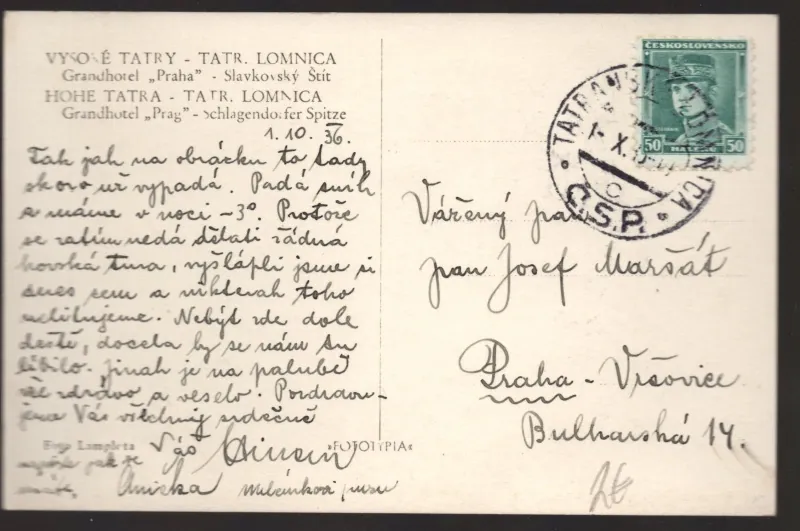 VYSOKÉ TATRY - TATR. LOMNICA
Grandhotel „Praha" - Slavkovský Štít
HOHE TATRA - TATR. LOMNICA
Grandhotel „Prag" - Schlagendorfer Spitze
1.10.36.
Tak jak na obrázku to tady
skoro už vypadá. Padá sníh
a máme v noci -3°. Protože
se zatím nedá dělati řádná
horská tura, vyšlápli jsme si
dnes sem a nikterak toho
nelitujeme. Nebýt zde dole
deště, docela by se nám tu
líbilo. Jinak je na palubě
vše zdrávo a veselo. Pozdravu-
jeme Vás všechny srdečně
Váš
Foto Lampletz
»FOTOTYPIA«
Anička
ČESKOSLOVENSKO
50 HALÉŘŮ 50
TATRANSKÁ LOMNICA
1. X. 36
C
Č.S.P.
Vážený pan
pan Josef Maršát
Praha - Vršovice
Bulharská 14.